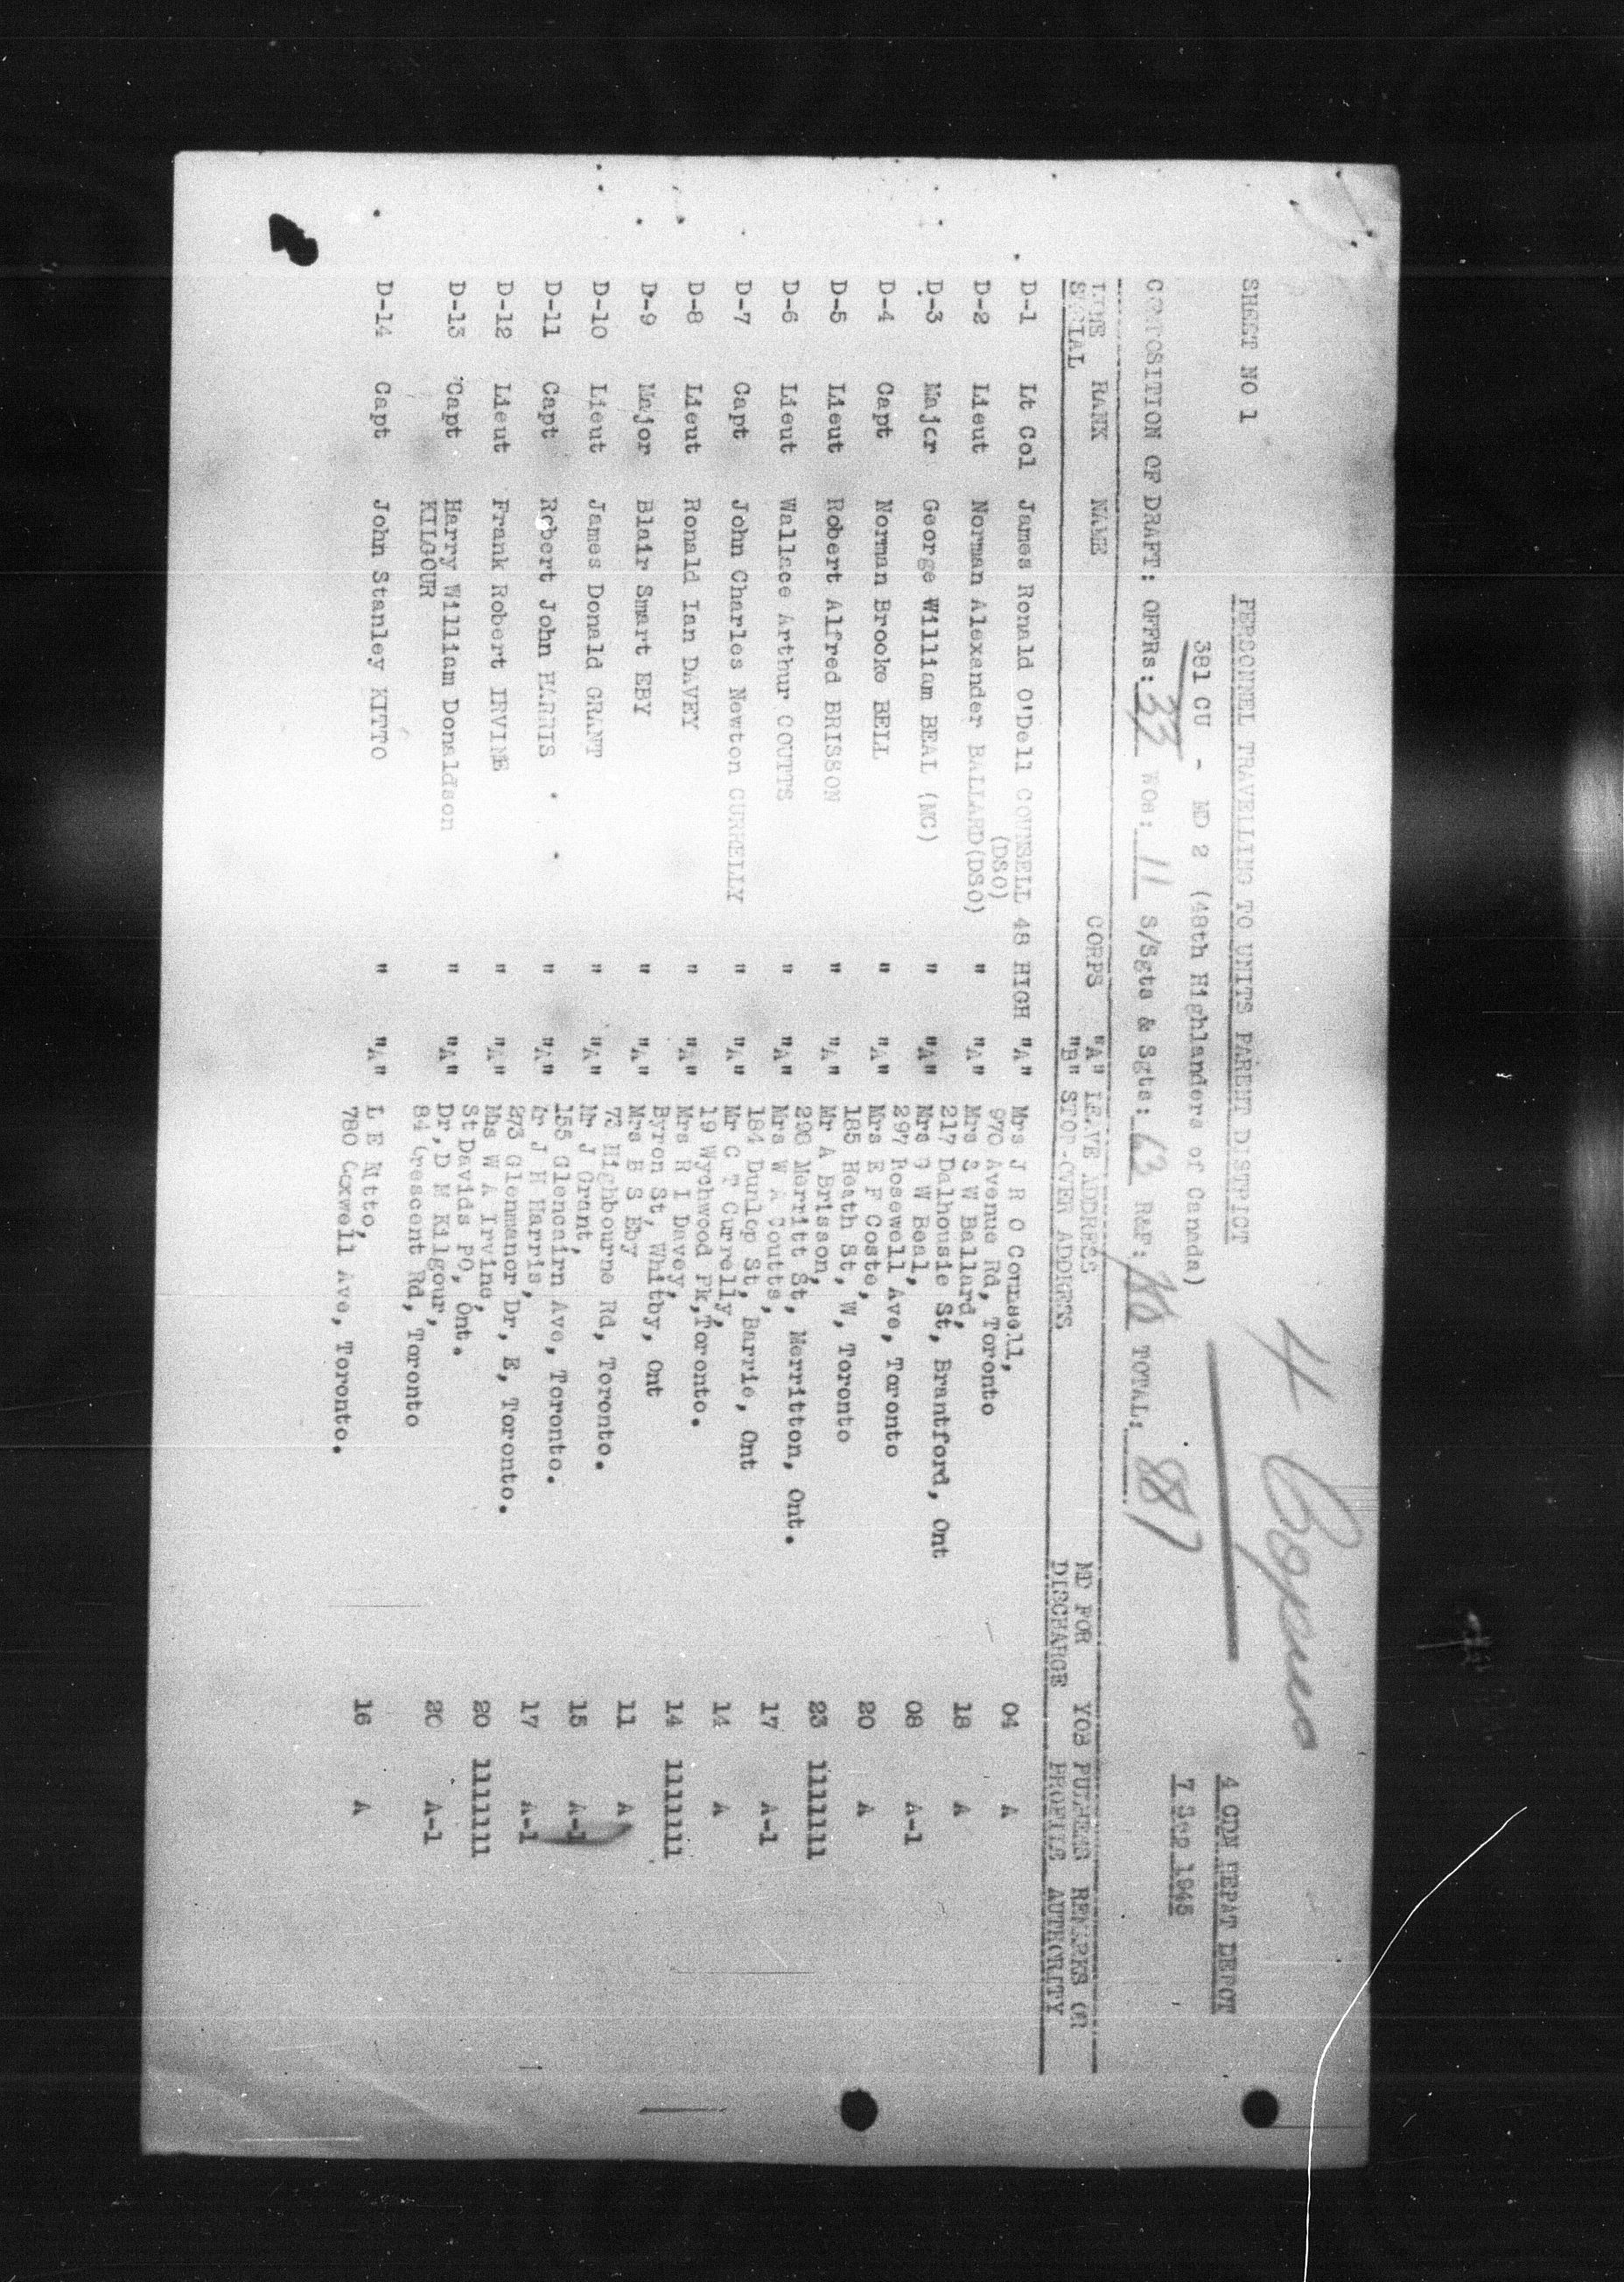 4 Copies
SHEET NO 1 PERSONNEL TRAVELLING TO UNITS PARENT DISTRICT 4 CDN REPAT DEPOT
381 CU - MD 2 (48th Highlanders of Canada) 7 Sep 1945
COMPOSITION OF DRAFT: OFFRs: 33 WOs: 11 S/Sgts & Sgts: 63 R&F: TOTAL: 887
RANK NAME CORPS "A" LEAVE ADDRESS MD FOR YOB PULHEMS REMARKS OR
SERIAL "B" STOP-OVER ADDRESS DISCHARGE PROFILE AUTHORITY
D-1 Lt Col James Ronald O'Dell COUNSELL 48 HIGH "A" Mrs J R O Counsell, 04 A
(DSO) 970 Avenue Rd, Toronto
D-2 Lieut Norman Alexander BALLARD(DSO) " "A" Mrs S W Ballard, 18 A
217 Dalhousie St, Brantford, Ont
D-3 Major George William BEAL (MC) " "A" Mrs G W Beal, 08 A-1
297 Rosewell Ave, Toronto
D-4 Capt Norman Brooke BELL " "A" Mrs E F Coste, 20 A
185 Heath St, W, Toronto
D-5 Lieut Robert Alfred BRISSON " "A" Mr A Brisson, 23 1111111
298 Merritt St, Merritton, Ont.
D-6 Lieut Wallace Arthur COUTTS " "A" Mrs W A Coutts, 17 A-1
184 Dunlop St, Barrie, Ont
D-7 Capt John Charles Newton CURRELLY " "A" Mr C T Currelly, 14 A
19 Wychwood Pk, Toronto.
D-8 Lieut Ronald Ian DAVEY " "A" Mrs R I Davey, 14 1111111
Byron St, Whitby, Ont
D-9 Major Blair Smart EBY " "A" Mrs B S Eby 11 A
73 Highbourne Rd, Toronto.
D-10 Lieut James Donald GRANT " "A" Mr J Grant, 15 A-1
155 Glencairn Ave, Toronto.
D-11 Capt Robert John HARRIS " "A" Mr J H Harris, 17 A-1
273 Glenmanor Dr, E, Toronto.
D-12 Lieut Frank Robert IRVINE " "A" Mrs W A Irvine, 20 1111111
St Davids PO, Ont.
D-13 Capt Harry William Donaldson " "A" Dr, D M Kilgour, 20 A-1
KILGOUR 84 Crescent Rd, Toronto
D-14 Capt John Stanley KITTO " "A" L E Kitto, 16 A
780 Coxwell Ave, Toronto.